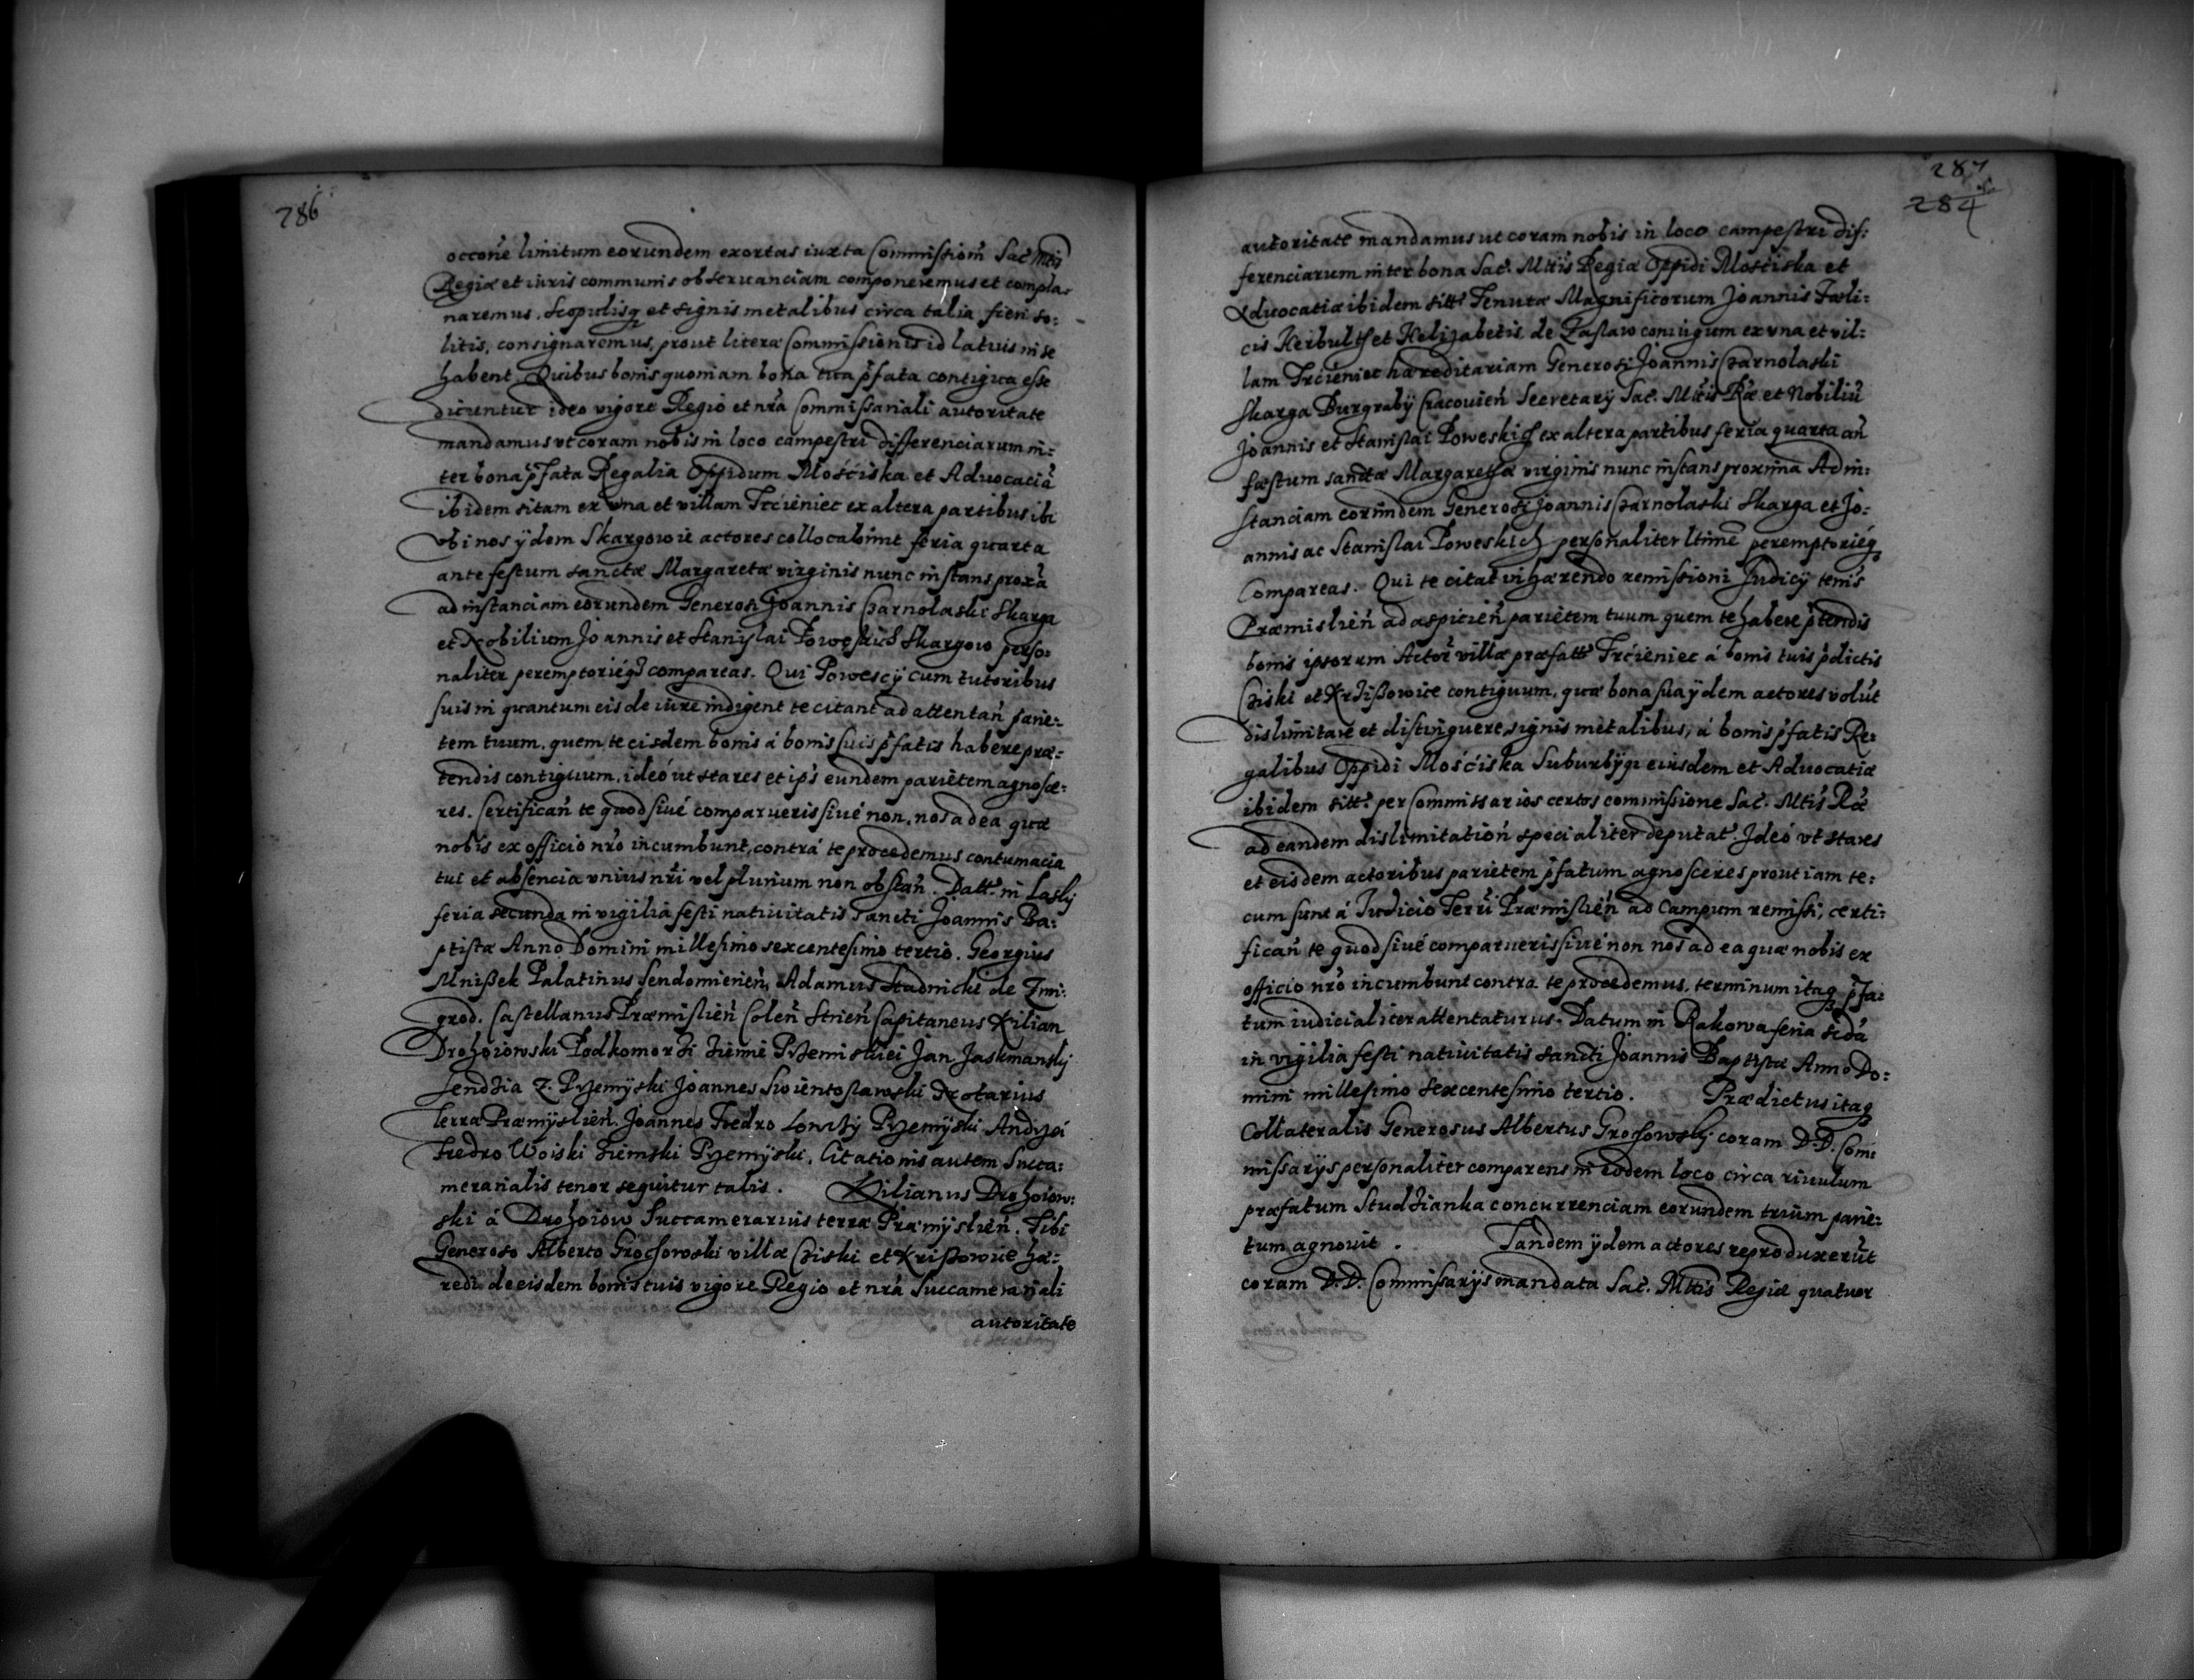 286
occone limitum eorundem exortas iuxta Commissiom Sac Mtis
Regiæ et iuris communis obseruanciam componeremus et compla-
naremus. Scopulisq et signis metalibus circa talia fieri so:
litis, consignaremus, prout literæ Commissionis id latuis in se
habent. Quibus bonis quoniam bona tua pfata contigua esse
dicuntur ideo vigore Regio et nra Commissariali autoritate
mandamus vt coram nobis in loco campestri differenciarum in:
ter bona pfata Regalia Oppidum Mościska et Aduocacia
ibidem sitam ex vna et villam Trcieniec ex altera partibus ibi
vbi nos ydem Skargowie actores collocabunt feria quarta
ante festum sanctæ Margaretæ virginis nunc instans proxa
ad instanciam eorundem Generosi Joannis Czarnolaski Skarga
et Nobilium Joannis et Stanislai Poweskich Skargow perso:
naliter peremptorieq compareas. Qui Powescy cum tutoribus
suis in quantum eis de iure indigent te citant ad attentan parie:
tem tuum, quem te eisdem bonis á bonis suis pfatis habere præ:
tendis contiguum, ideó ut stares et ips eundem parietem agnosce:
res. Certifican te quod siué comparueris siué non, nos ad ea quæ
nobis ex officio nro incumbunt, contrá te procedemus contumacia
tui et absencia vnius nri vel plurium non obstan. Datt. in Lasky
feria secunda in vigilia festi natiuitatis Sancti Joannis Ba:
ptistæ Anno Domini millesimo sexcentesimo tertio. Georgius
Mnißek Palatinus Sendomirien, Adamus Stadnicki de Zmi:
grod. Castellanus Præmislien Colen Strien Capitaneus Kilian
Drohoiowski Podkomorzi Ziemie Przemiskiei Jan Jaskmansky
Sendzia Z. Przemÿski Joannes Swientoslawski Notarius
terræ Præmÿslien. Joannes Fredro Lowczy Przemÿski Andrzei
Fredro Woiski Ziemski Przemÿski. Citationis autem Succa:
merarialis tenor sequitur talis. Kilianus Drohoiow:
ski á Drohoiow Succamerarius terræ Præmÿslien. Tibi
Generoso Alberto Grochowski villæ Cziski et Krißowice hæ:
redi de eisdem bonis tuis vigore Regio et nra Succamerariali
autoritate
287
284
autoritate mandamus ut coram nobis in loco campestri dif:
ferenciarum inter bona Sac. Mttis Regiæ Oppidi Mościska et
Aduocatiæ ibidem sitt Tenutæ Magnificorum Joannis Fæli:
cis Herbulth et Helizabetis de Zaslaw coniugum ex vna et vil:
lam Trcieniec hæreditariam Generosi Joannis Czarnolaski
Skarga Burgrabÿ Cracouien Secretarÿ Sac. Mttis Ræ et Nobiliu
Joannis et Stanislai Poweskich ex altera partibus feria quarta an
fæstum sanctæ Margarethæ virginis nunc instans proxima Ad in:
stanciam eorundem Generosi Joannis Czarnolaski Skarga et Jo:
annis ac Stanislai Poweskich personaliter ltime peremptorieq
Compareas. Qui te citat vi hærendo remissioni Judicÿ terris
Præmislien ad aspicien parietem tuum quem te habere ptendis
bonis ipsorum Actor villæ præfatt Trcieniec á bonis tuis pdictis
Cziski et Krzißowice contiguum, quæ bona sua ÿdem actores volut
dislimitare et distinguere, signis metalibus, á bonis pfatis Re:
galibus Oppidi Mościska Suburbÿq eiusdem et Aduocatiæ
ibidem sitt. per Commissarios certos commissione Sac. Mttis Ræ
ad eandem dislimitation specialiter deputat. Jdeó vt stares
et eisdem actoribus parietem pfatum agnosceres prout iam te:
cum sunt á Judicio Terri Præmislien ad Campum remissi, certi:
fican te quod siué comparueris siué non nos ad ea quæ nobis ex
officio nro incumbunt contra te procedemus, terminum itaq pfa:
tum iudicialiter attentaturus. Datum in Rakowa feria scda
in vigilia festi natiuitatis sancti Joannis Baptistæ Anno Do:
mini millesimo sexcentesimo tertio. Prædictus itaq
Collateralis Generosus Albertus Grochowsky coram D.D. Com:
missarÿs personaliter comparens in eodem loco circa riuulum
præfatum Studzianka concurrenciam eorundem trium parie:
tum agnouit. Tandem ÿdem actores reproduxerut
coram D.D. Commissarÿs mandata Sac. Mttis Regiæ quatuor